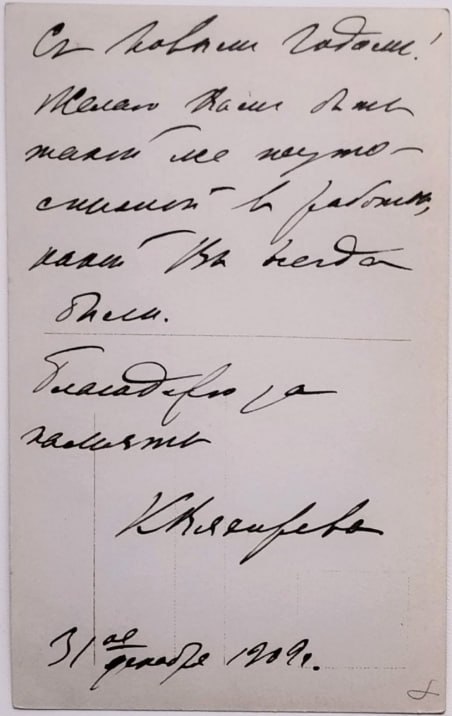 Съ Новымъ Годомъ!
Желаю Вамъ быть
такой же неуто-
мимой въ работѣ,
какой Вы всегда
были.
Благодарю за
память
31ое декабря 1909г.